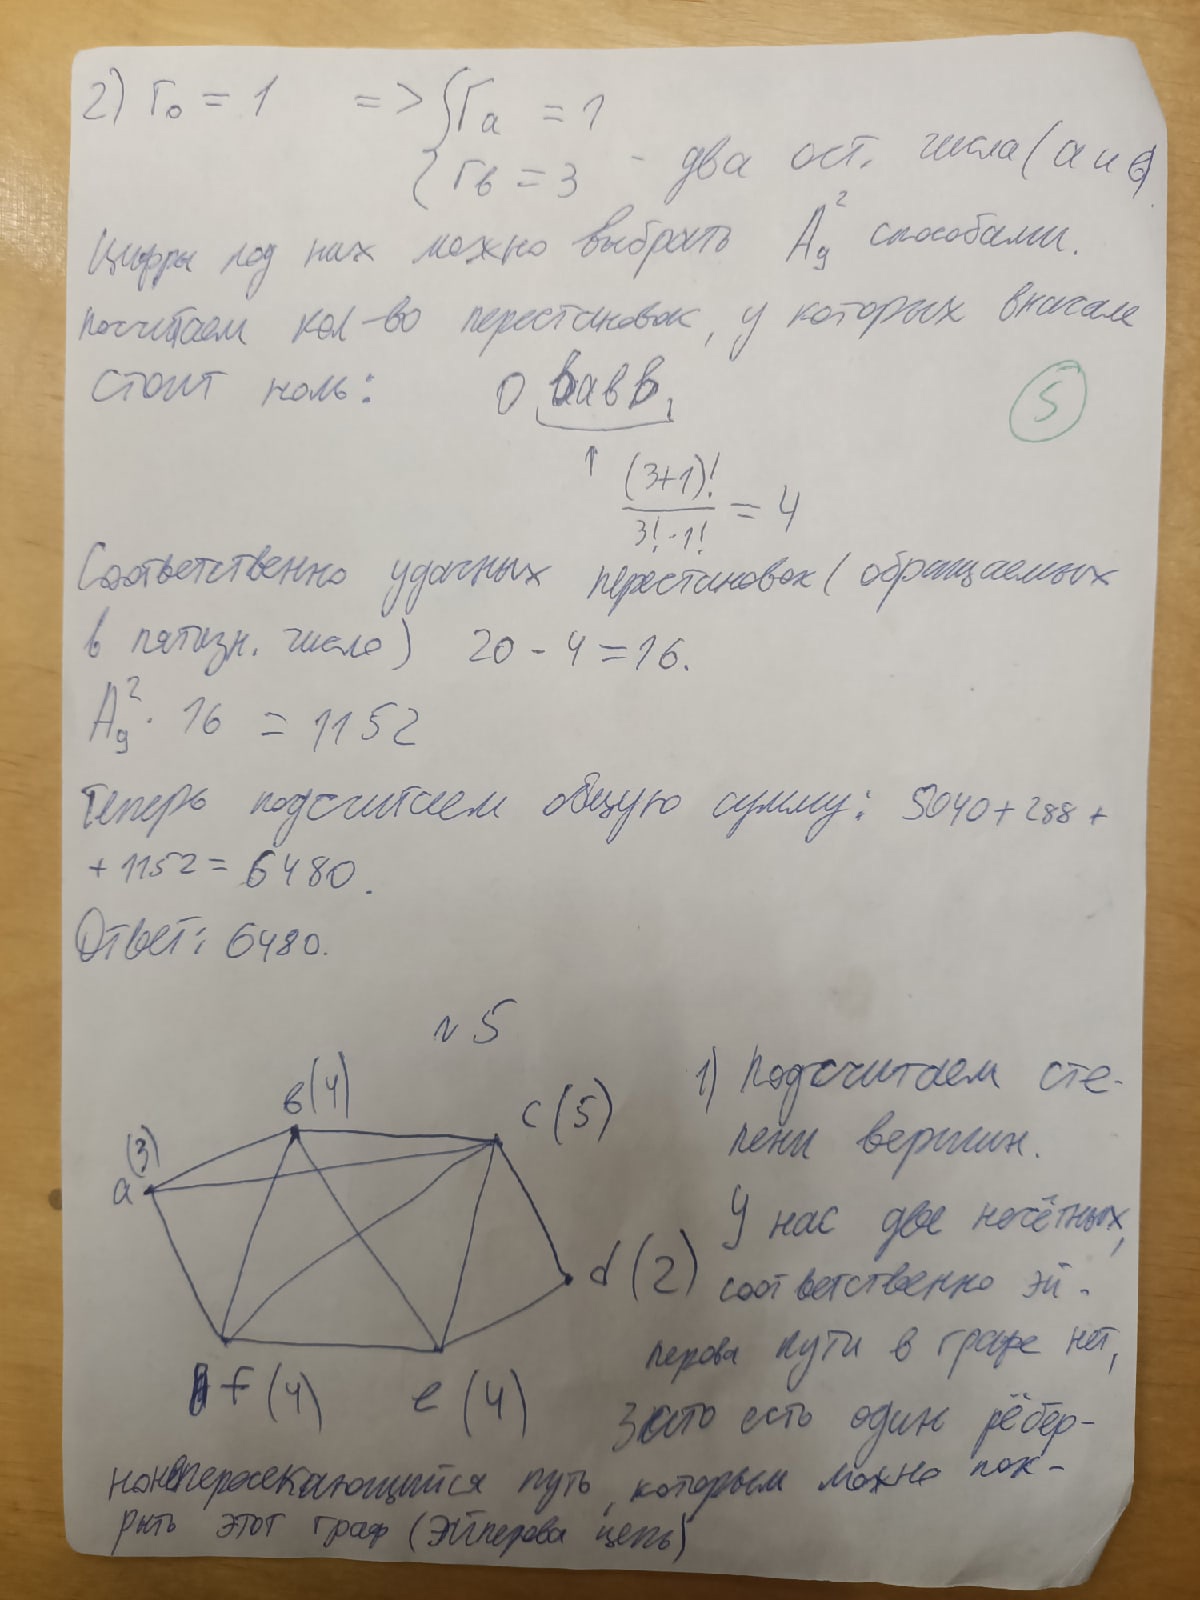 2) r₀ = 1 => { rₐ = 1
{ rв = 3 - два ост. числа (а и в)
Цифры под них можно выбрать A₉² способами.
посчитаем кол-во перестановок, у которых вначале
стоит ноль: 0 bавb,
5
↑ (3+1)!/(3!·1!) = 4
Соответственно удачных перестановок (обращаемых
в пятизн. число) 20 - 4 = 16.
A₉² · 16 = 1152
Теперь подсчитаем общую сумму: 5040 + 288 +
+ 1152 = 6480.
Ответ: 6480.
№5
в(4)
c(5)
a(3)
d(2)
f(4)
e(4)
1) Подсчитаем сте-
пени вершин.
У нас две нечётных,
соответственно эй-
лерова пути в графе нет,
Зато есть один рёбер-
нонепересекающийся путь, которым можно пок-
рыть этот граф (Эйлерова цепь)